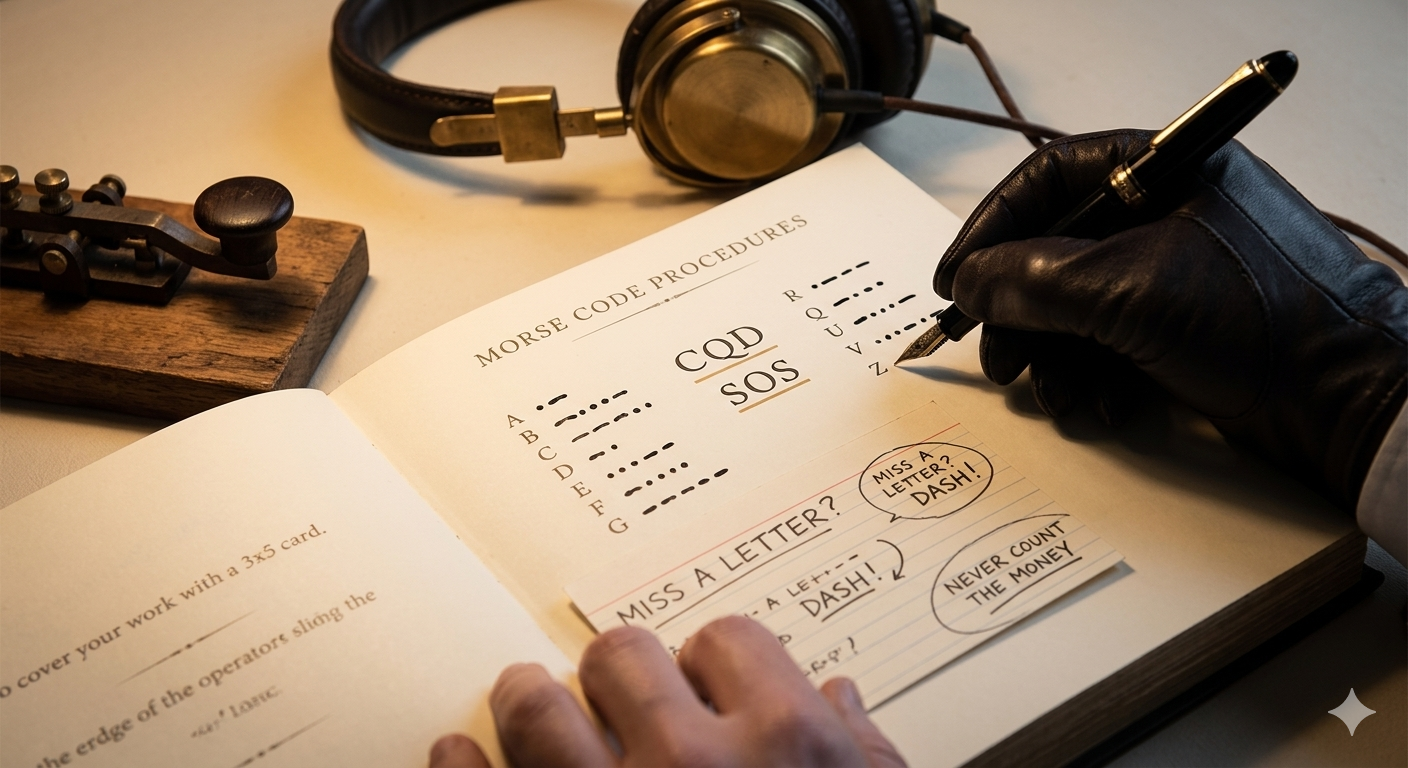 MORSE CODE PROCEDURES
A
B
C
D
E
F
G
CQD
SOS
R
Q
U
V
Z
MISS A LETTER?
MISS A
LETTER?
DASH!
A
DASH!
NEVER COUNT
THE MONEY
o cover your work with a 3x5 card.
the erdge of the operators sliding the